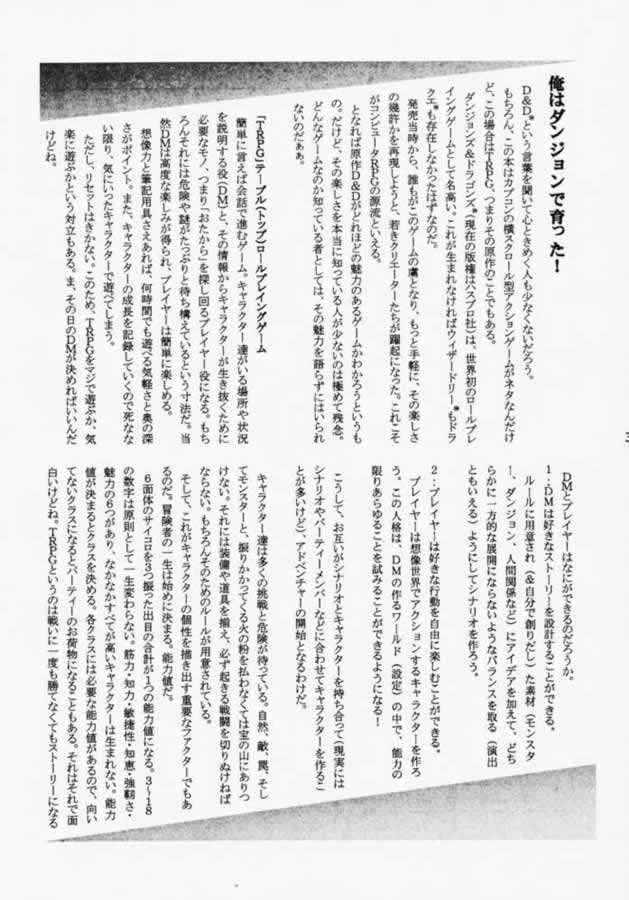 俺はダンジョンで育った！
D&D*という言葉を聞いて心ときめく人も少なくないだろう。
もちろん、この本はカプコンの横スクロール型アクションゲームがネタなんだけ
ど、この場合はTRPG、つまりその原作のことでもある。
ダンジョンズ&ドラゴンズ*(現在の版権はハスブロ社)は、世界初のロールプレ
イングゲームとして名高い。これが生まれなければウィザードリー*もドラ
クエ*も存在しなかったはずなのだ。
発売当時から、誰もがこのゲームの虜となり、もっと手軽に、その楽しさ
の幾許かを再現しようと、若きクリエーターたちが躍起になった。これこそ
がコンピュータRPGの源流といえる。
となれば原作D&Dがどれほどの魅力のあるゲームかわかろうというも
の。だけど、その楽しさを本当に知っている人が少ないのは極めて残念。
どんなゲームなのか知っている者としては、その魅力を語らずにはいられ
ないのだぁぁ。
「TRPG」テーブル(トップ)ロールプレイングゲーム
簡単に言えば会話で進むゲーム。キャラクター達がいる場所や状況
を説明する役(DM)と、その情報からキャラクターが生き抜くために
必要なモノ、つまり「おたから」を探し回るプレイヤー役になる。もち
ろんそれには危険や謎がたっぷりと待ち構えているという寸法だ。当
然DMは高度な楽しみが得られ、プレイヤーは簡単に楽しめる。
想像力と筆記用具さえあれば、何時間でも遊べる気軽さと奥の深
さがポイント。また、キャラクターの成長を記録していくので死なな
い限り、気にいったキャラクターで遊べてしまう。
ただし、リセットはきかない。このため、TRPGをマジで遊ぶか、気
楽に遊ぶかという対立もある。ま、その日のDMが決めればいいんだ
けどね。
DMとプレイヤーはなにができるのだろうか。
1.DMは好きなストーリーを設計することができる。
ルールに用意され(&自分で創りだし)た素材(モンスタ
ー、ダンジョン、人間関係など)にアイデアを加えて、どち
らかに一方的な展開にならないようなバランスを取る(演出
ともいえる)ようにしてシナリオを作ろう。
2.プレイヤーは好きな行動を自由に楽しむことができる。
プレイヤーは想像世界でアクションするキャラクターを作ろ
う。この人格は、DMの作るワールド(設定)の中で、能力の
限りあらゆることを試みることができるようになる!
こうして、お互いがシナリオとキャラクターを持ち合って(現実には
シナリオやパーティーメンバーなどに合わせてキャラクターを作るこ
とが多いけど)、アドベンチャーの開始となるわけだ。
キャラクター達は多くの挑戦と危険が待っている。自然、敵、罠、そし
てモンスターと、振りかかってくる火の粉を払わなくては宝の山にありつ
けない。それには装備や道具を揃え、必ず起きる戦闘を切りぬけねば
ならない。もちろんそのためのルールが用意されている。
そして、これがキャラクターの個性を描き出す重要なファクターでもあ
るのだ。冒険者の一生は始めに決まる。能力値だ。
6面体のサイコロを3つ振った出目の合計が1つの能力値になる。3〜18
の数字は原則として一生変わらない。筋力・知力・敏捷性・知恵・強靱さ・
魅力の6つがあり、なかなかすべてが高いキャラクターは生まれない。能力
値が決まるとクラスを決める。各クラスには必要な能力値があるので、向い
てないクラスになるとパーティーのお荷物になることもある。それはそれで面
白いけどね。TRPGというのは戦いに一度も勝てなくてもストーリーになる
3